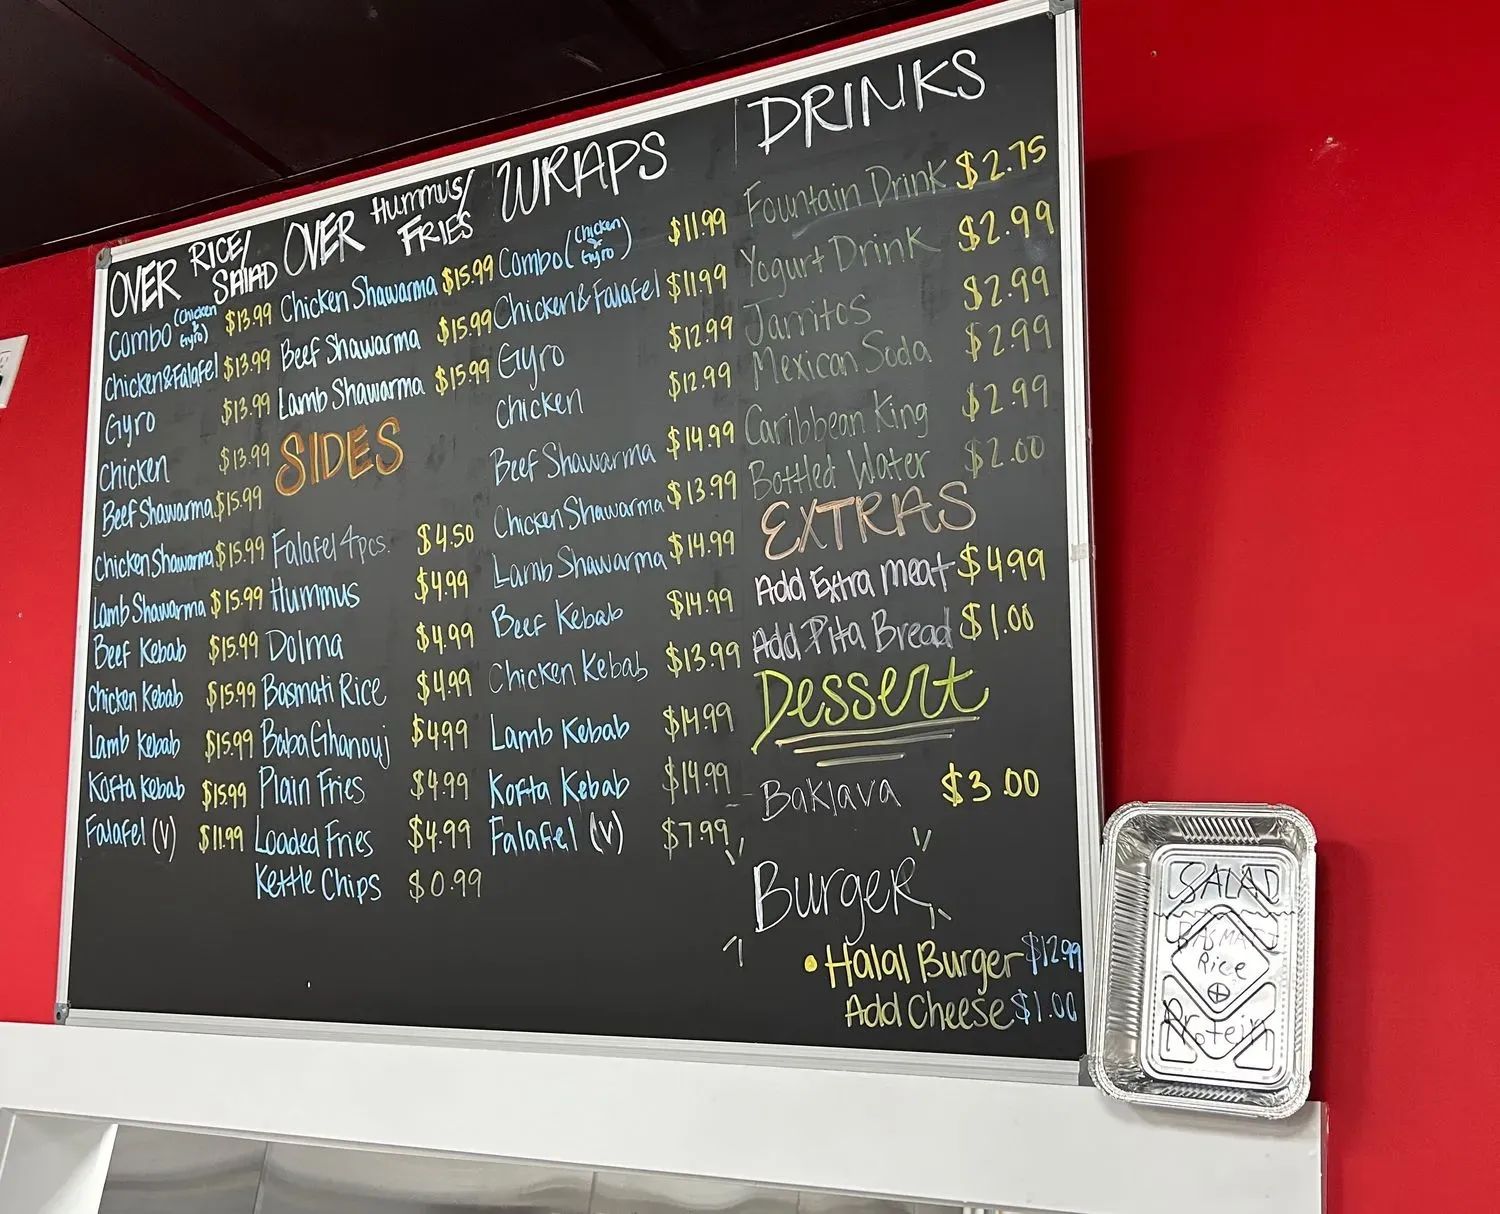 OVER RICE/
SALAD
Combo (Chicken & Gyro) $13.99
Chicken & Falafel $13.99
Gyro $13.99
Chicken $13.99
Beef Shawarma $15.99
Chicken Shawarma $15.99
Lamb Shawarma $15.99
Beef Kebab $15.99
Chicken Kebab $15.99
Lamb Kebab $15.99
Kofta Kebab $15.99
Falafel (V) $11.99
OVER Hummus/
FRIES
Chicken Shawarma $15.99
Beef Shawarma $15.99
Lamb Shawarma $15.99
SIDES
Falafel 4pcs. $4.50
Hummus $4.99
Dolma $4.99
Basmati Rice $4.99
Baba Ghanouj $4.99
Plain Fries $4.99
Loaded Fries $4.99
Kettle Chips $0.99
WRAPS
Combo (Chicken & Gyro) $11.99
Chicken & Falafel $11.99
Gyro $12.99
Chicken $12.99
Beef Shawarma $14.99
Chicken Shawarma $13.99
Lamb Shawarma $14.99
Beef Kebab $14.99
Chicken Kebab $13.99
Lamb Kebab $14.99
Kofta Kebab $14.99
Falafel (V) $7.99
DRINKS
Fountain Drink $2.75
Yogurt Drink $2.99
Jarritos $2.99
Mexican Soda $2.99
Caribbean King $2.99
Bottled Water $2.00
EXTRAS
Add Extra meat $4.99
Add Pita Bread $1.00
Dessert
Baklava $3.00
Burger
• Halal Burger $12.99
Add Cheese $1.00
SALAD
BASMATI
Rice
Protein